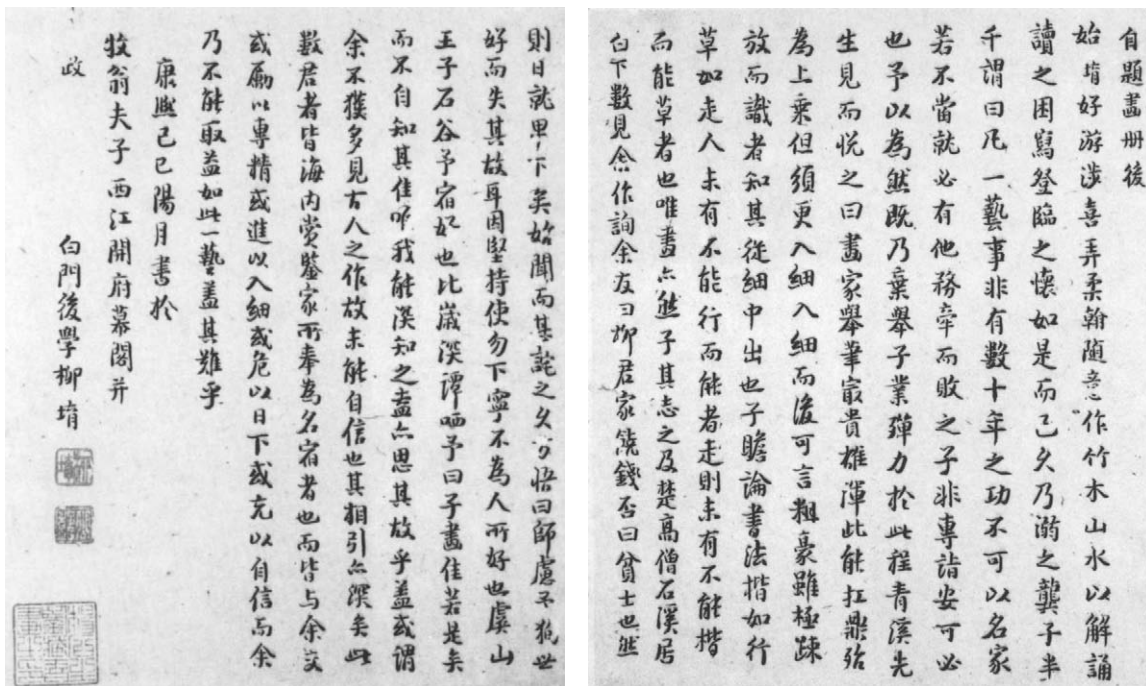 自題畫册後
始堉好游涉喜弄柔翰随意之作竹木山水以解誦
讀之困寫登臨之懷如是而已久乃溺之龔子半
千謂曰凡一藝事非有數十年之功不可以名家
若不當就必有他務牽而敗之子非專詣安可必
也予以為然既乃棄舉子業殫力於此程青溪先
生見而悦之曰畫家舉筆寂貴雄渾此能扛鼎殆
為上乘但須更入細入細而後可言粗豪雖極疎
放而識者知其從細中出也子瞻論書法楷如行
草如走人未有不能行而能者走則未有不能楷
而能草者也唯畫亦然子其志之及楚高僧石溪居
白下數見余作詢余友曰柳君家饒錢否曰貧士也然
則日就卑下矣始聞而甚詫之久乃悟曰師慮不狥世
好而失其故耳因堅持使勿下寧不為人所好也虞山
王子石谷予宿好也比歲深譚哂予曰子畫佳若是矣
而不自知其佳唯我能深知之盍亦思其故乎蓋或謂
余不獲多見古人之作故未能自信也其相引亦深矣此
數君者皆海内赏鑒家所奉為名宿者也而皆与余交
或勵以專精或進以入細或危以日下或充以自信而余
乃不能取益如此一藝蓋其難乎
康熙己巳陽月書於
牧翁夫子西江開府幕閣并
政
白門後學柳堉